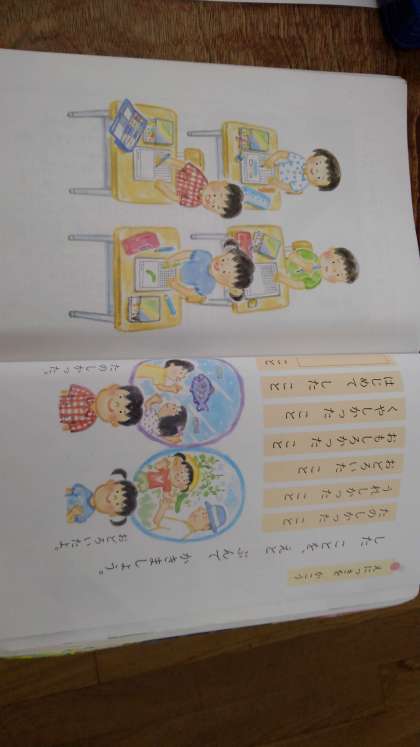 えにっきを かこう
した ことを、えと
ぶんで かきましょう。
たのしかった こと
うれしかった こと
おどろいた こと
おもしろかった こと
くやしかった こと
はじめて した こと
こと
おどろいたよ。
たのしかった。